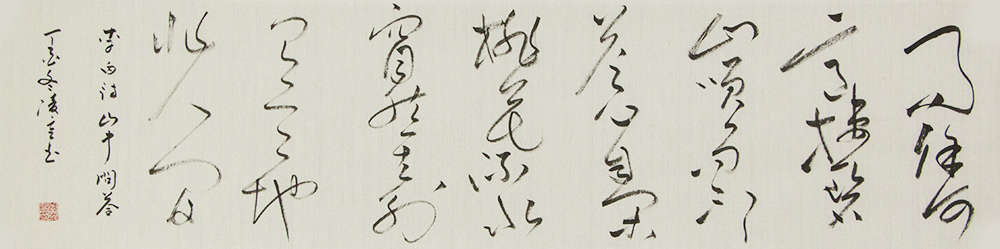 问余何
意棲碧
山笑而不
答心自闲
桃花流水
窅然去别
有天地
非人间
李白诗山中問答
丁酉冬凌书